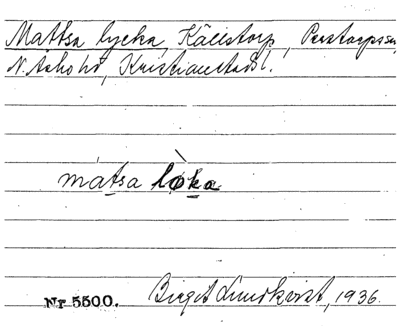 Mattsa lycka, Källstorp, Perstorps sn,
N. Åsbo hd, Kristianstads l.
màtsa lò̀ka
Nr 5500. Birgit Lindkvist, 1936.